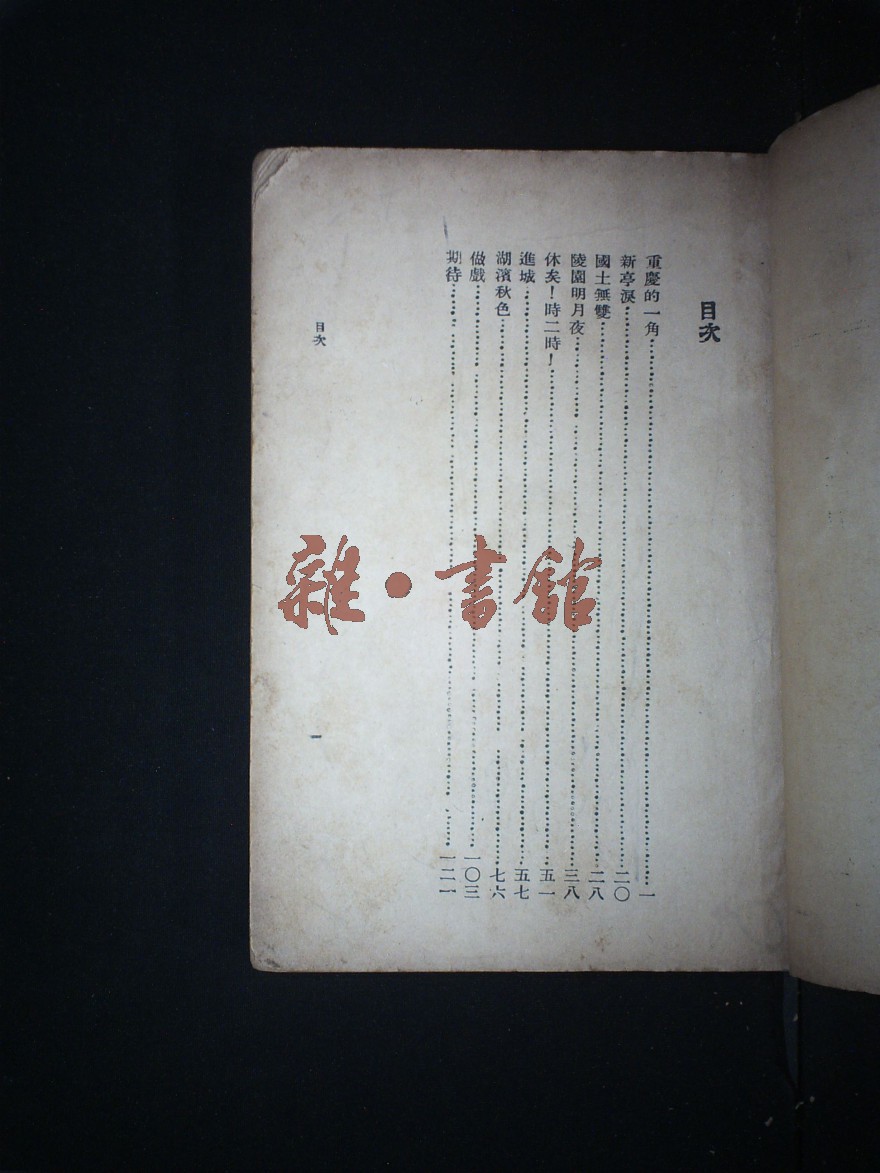 目次
重慶的一角……一
新亭淚……二〇
國士無雙……二八
陵園明月夜……三八
休矣！時二時！……五一
進城……五七
湖濱秋色……七六
做戲……一〇三
期待……一二一
目次
一
雜·書館